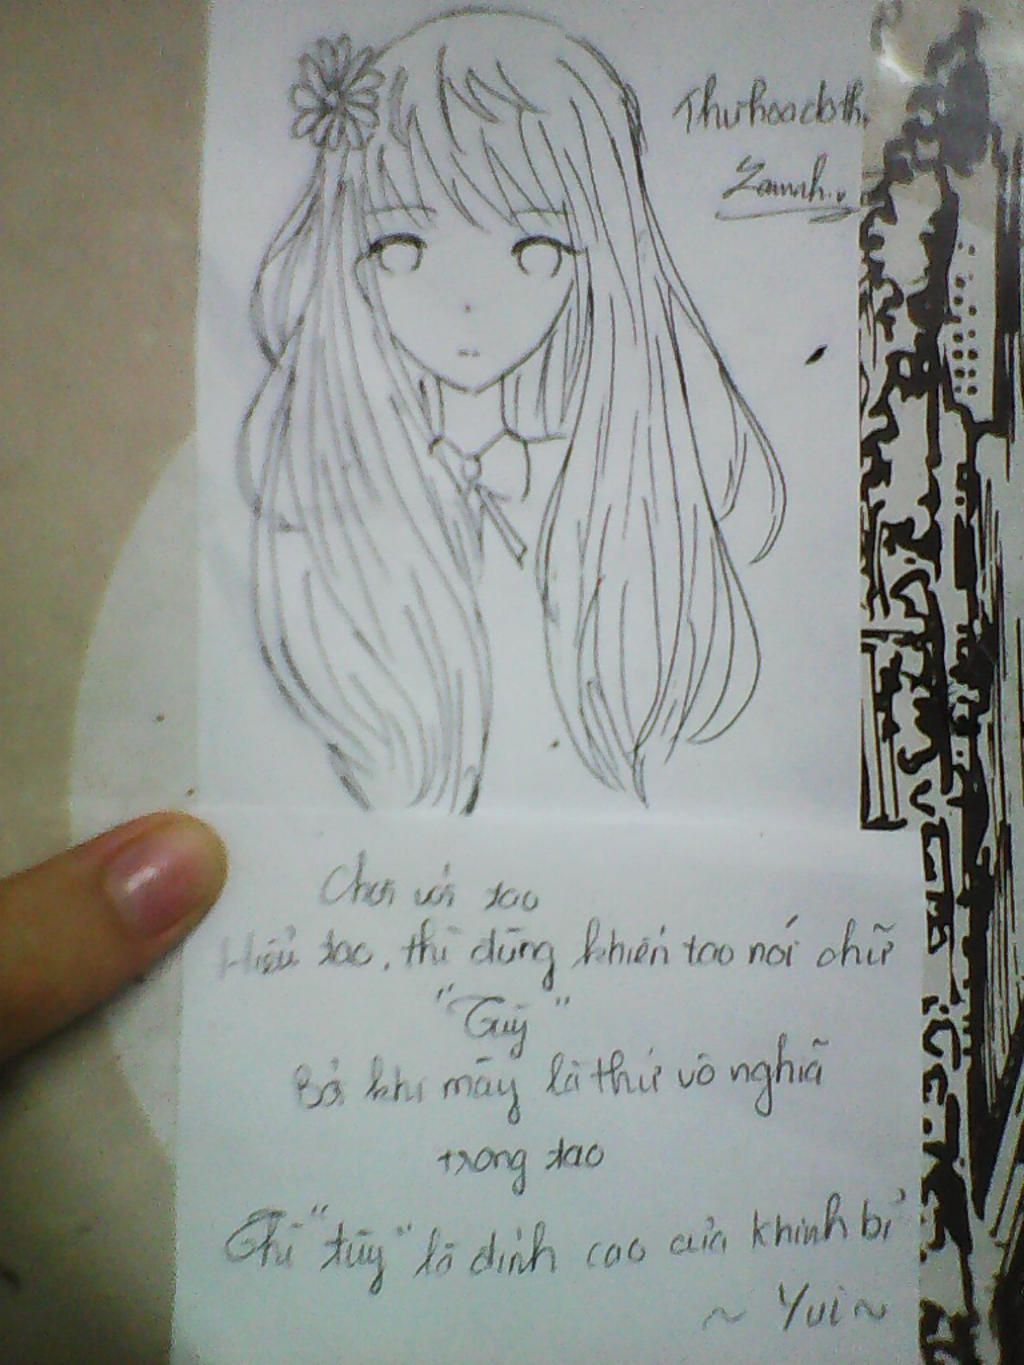 Chơi với tao
Hiểu tao, thì đừng khiến tao nói chữ
"Tùy"
Bởi khi mày là thứ vô nghĩa
trong tao
Thì "tùy" là đỉnh cao của khinh bỉ
~ Yui ~